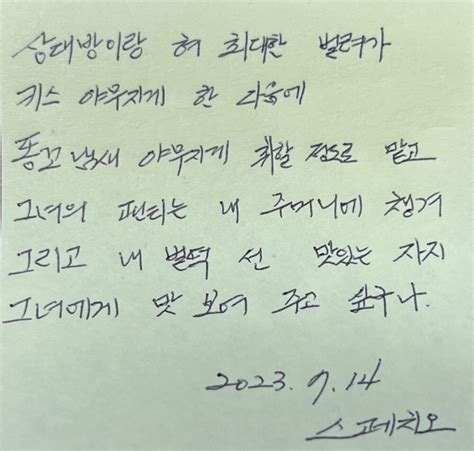 상대방이랑 혀 최대한 벌려가
키스 야무지게 한 다음에
똥꼬 냄새 야무지게 취할 정도로 맡고
그녀의 팬티는 내 주머니에 챙겨
그리고 내 벌떡 선 맛있는 자지
그녀에게 맛 보여 주고 싶구나.
2023. 9. 14
스페치오